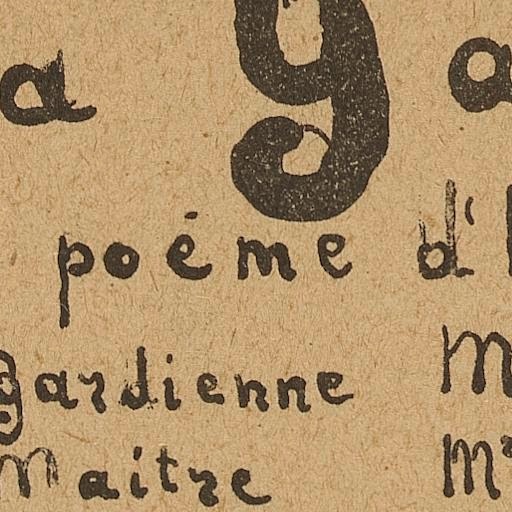 a 9 a
poéme d'
gardienne M
Maitre Mr